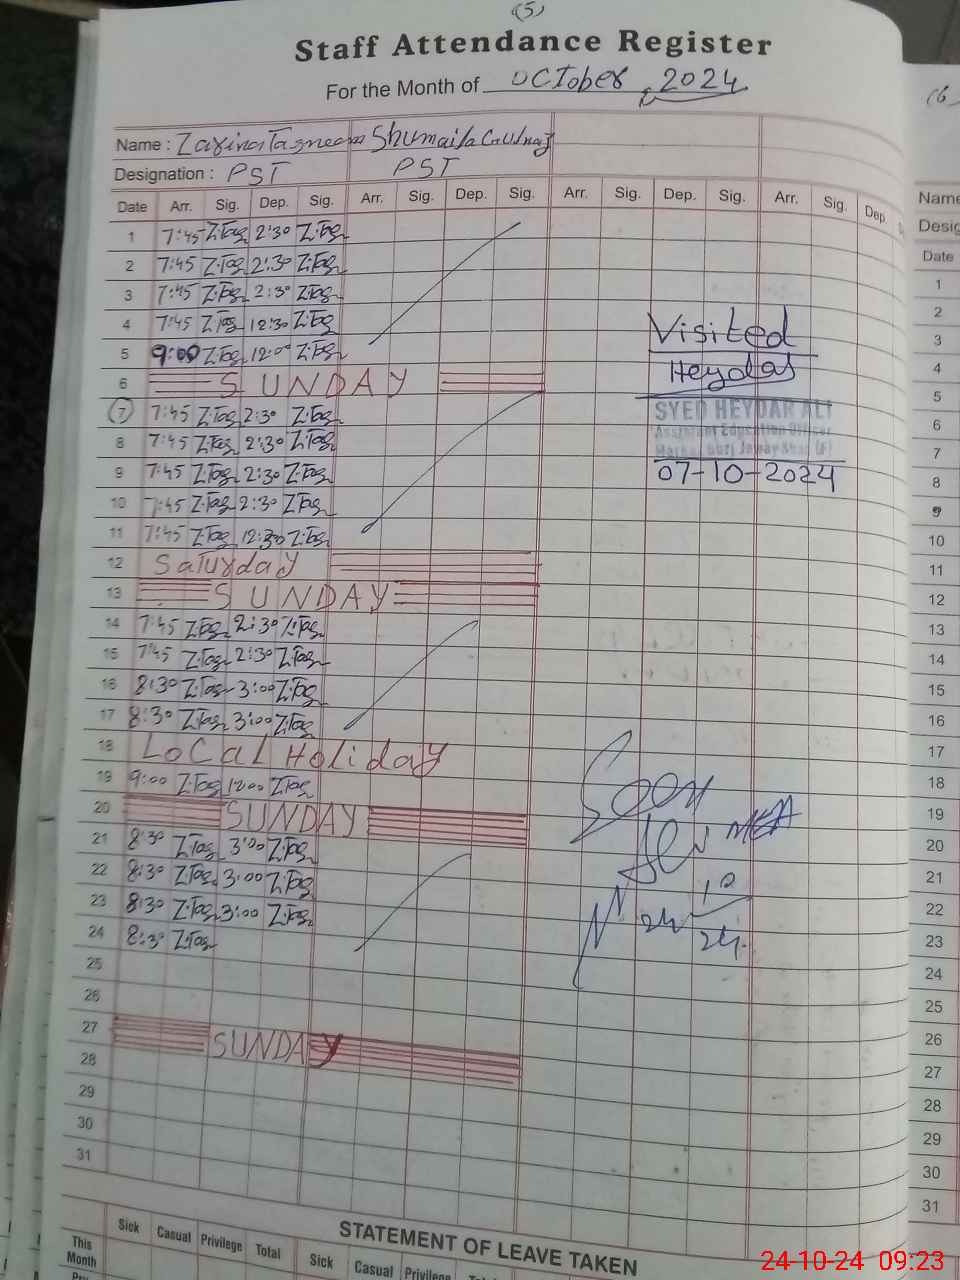 (5)
Staff Attendance Register
For the Month of October, 2024
Name : Shumaila Gulnaz
Designation : PST PST
Date Arr. Sig. Dep. Sig. Arr. Sig. Dep. Sig. Arr. Sig. Dep. Sig. Arr. Sig. Dep
1 7:45 Z.Tag 2:30 Z.Tag
2 7:45 Z.Tag 2:30 Z.Tag
3 7:45 Z.Tag 2:30 Z.Tag
4 7:45 Z.Tag 12:30 Z.Tag
5 9:00 Z.Tag 12:00 Z.Tag
6 SUNDAY
7 7:45 Z.Tag 2:30 Z.Tag
8 7:45 Z.Tag 2:30 Z.Tag
9 7:45 Z.Tag 2:30 Z.Tag
10 7:45 Z.Tag 2:30 Z.Tag
11 7:45 Z.Tag 12:30 Z.Tag
12 Saturday
13 SUNDAY
14 7:45 Z.Tag 2:30 Z.Tag
15 7:45 Z.Tag 2:30 Z.Tag
16 8:30 Z.Tag 3:00 Z.Tag
17 8:30 Z.Tag 3:00 Z.Tag
18 Local Holiday
19 9:00 Z.Tag 1200 Z.Tag
20 SUNDAY
21 8:30 Z.Tag 3:00 Z.Tag
22 8:30 Z.Tag 3:00 Z.Tag
23 8:30 Z.Tag 3:00 Z.Tag
24 8:30 Z.Tag
25
26
27 SUNDAY
28
29
30
31
Visited
Heydar
SYED HEYDAR ALI
Assistant Education Officer
07-10-2024
Seen
24 10
24
STATEMENT OF LEAVE TAKEN
Sick Casual Privilege Total Sick Casual Privilege
This Month
(6
Name
Desig
Date
1
2
3
4
5
6
7
8
9
10
11
12
13
14
15
16
17
18
19
20
21
22
23
24
25
26
27
28
29
30
31
24-10-24 09:23